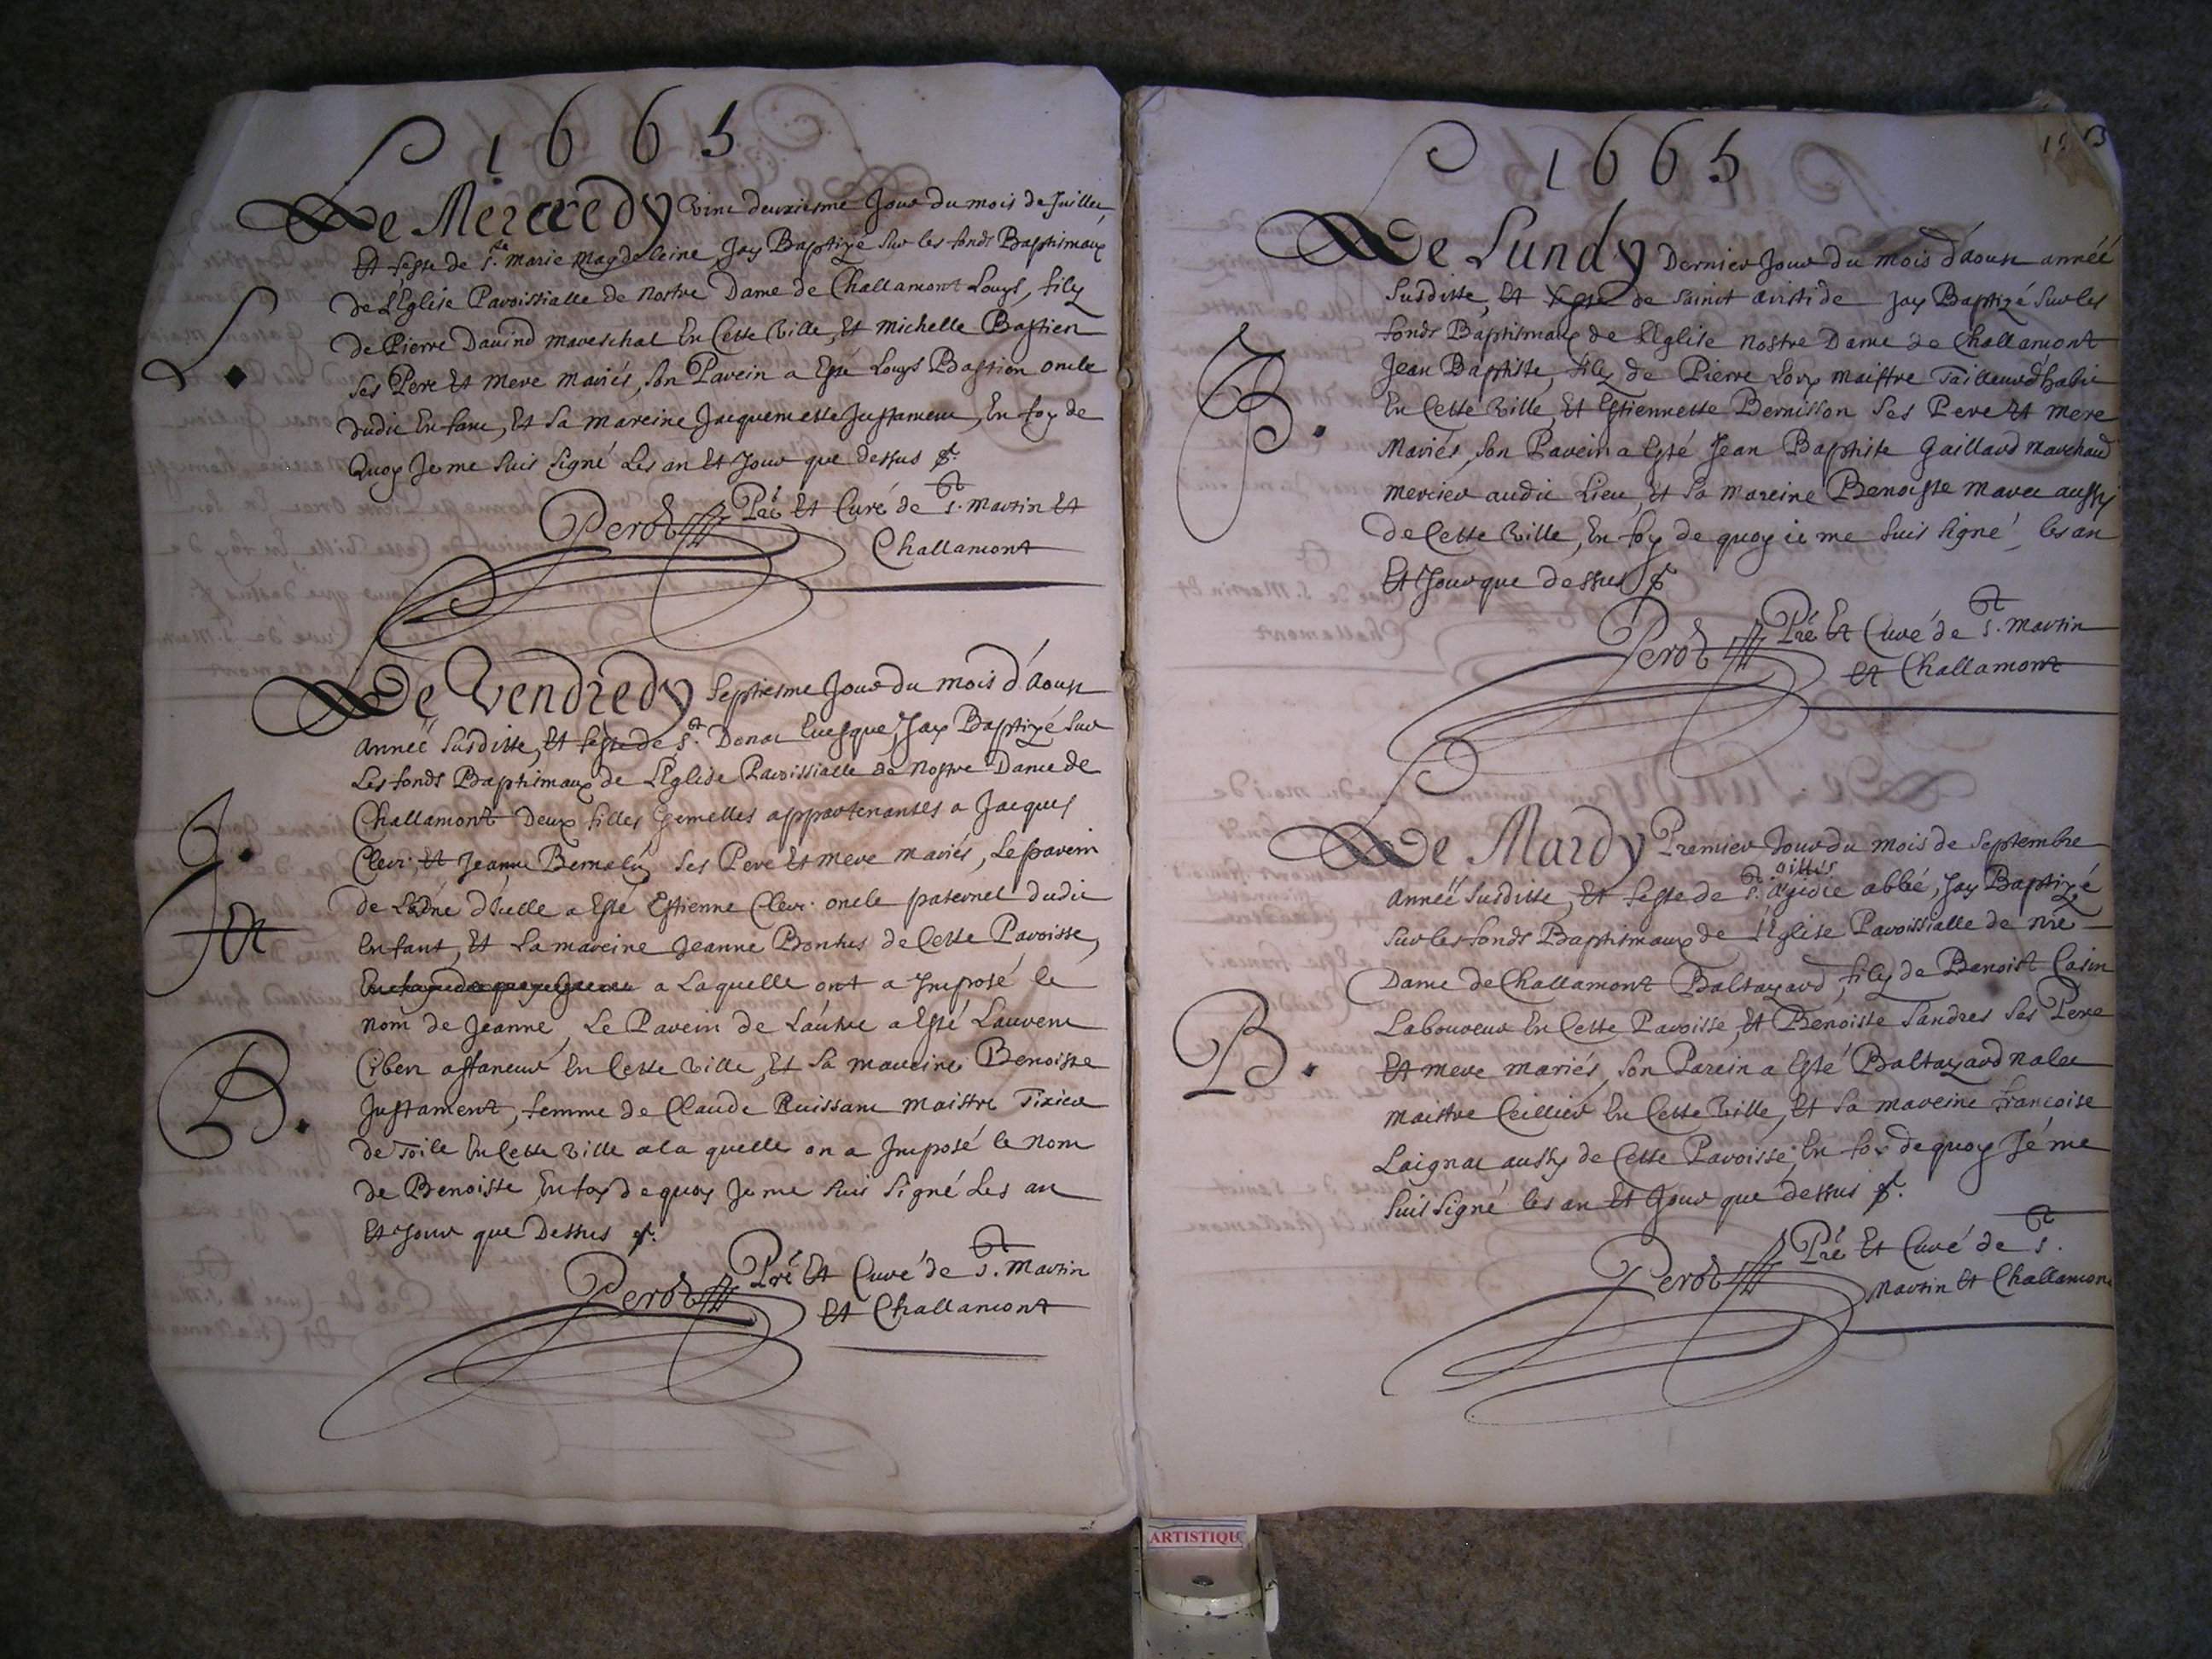 1665
Le Mercredy vint deuxiesme Jour du mois de Juillet
Et feste de S.te Marie Magdeleine Jay Baptizé sur les fonds Baptismaux
de L'Eglise Paroissialle de Nostre Dame de Challamont Louys, filz
de Pierre Dauind mareschal En Cette Ville, Et Michelle Bastien
ses Pere Et mere mariés, son Parein a Esté Louys Bastien oncle
dudit Enfant, Et sa mareine Jacquemette Justament, En foy de
quoy Je me suis signé Les an Et Jour que dessus
L.
Perot Pré Et Curé de St. Martin Et
Challamont
Le Vendredy Septiesme Jour du mois d'Aoust
année susditte, Et feste de St. Donat Euesque, Jay Baptizé sur
Les fonds Baptismaux de L'Eglise Paroissialle de Nostre Dame de
Challamont Deux filles Gemelles appartenantes a Jacques
Clerc Et Jeanne ses Pere Et mere mariés, Le parein
de L'aisné d'Icelle a Esté Estienne Clerc oncle paternel dudit
Enfant, Et La mareine Jeanne Bontus de Cette Paroisse,
a Laquelle ont a Imposé le
nom de Jeanne, Le Parein de L'autre a Esté Laurent
Ciben affaneur En Cette Ville, Et sa mareine Benoiste
Justament, femme de Claude Ruissant Maistre Tixier
de Toile En Cette Ville a la quelle on a Imposé le nom
de Benoiste En foy de quoy Je me suis signé Les an
Et Jour que Dessus
J.
Et
B.
Perot Pré Et Curé de St. Martin
Et Challamont
1665
Le Lundy Dernier Jour du mois d'aoust année
susditte, Et feste de sainct Aristide Jay Baptizé sur les
fonds Baptismaux de L'Eglise Nostre Dame de Challamont
Jean Baptiste, filz de Pierre Loup maistre Tailleur d'habit
En Cette Ville, Et Estiennette Bernisson ses Pere Et mere
Mariés, son Parein a Esté Jean Baptiste Gaillard Marchand
mercier audit Lieu, Et sa mareine Benoiste Maret aussy
de Cette Ville, En foy de quoy ie me suis signé les an
Et Jour que dessus
JB.
Perot Pré Et Curé de St. Martin
Et Challamont
Le Mardy Premier Jour du mois de Septembre
Gilles
année susditte, Et feste de St. Agidie abbé, Jay Baptizé
sur les fonds Baptismaux de L'Eglise Paroissialle de Nre
Dame de Challamont Baltazard, filz de Benoist Casin
Laboureur En Cette Paroisse, Et Benoiste Sandres ses Pere
Et mere mariés, son Parein a Esté Baltazard Nalet
maistre Ceillier En Cette Ville, Et sa mareine francoise
Laignac aussy de Cette Paroisse, En foy de quoy Jé me
suis signé les an Et Jour que dessus
B.
Perot Pré Et Curé de St.
Martin Et Challamont
ARTISTIQU